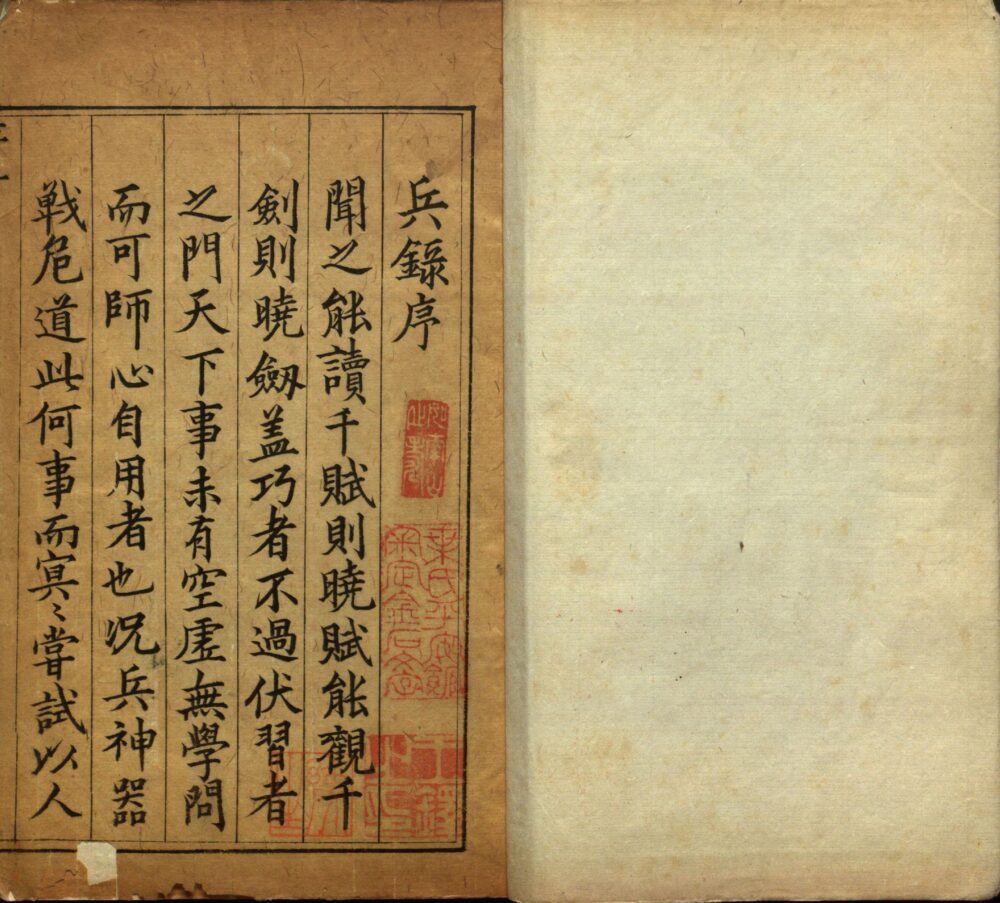 兵錄序
聞之能讀千賦則曉賦能觀千
劍則曉劒盖巧者不過伏習者
之門天下事未有空虛無學問
而可師心自用者也况兵神器
戰危道此何事而冥〻嘗試以人